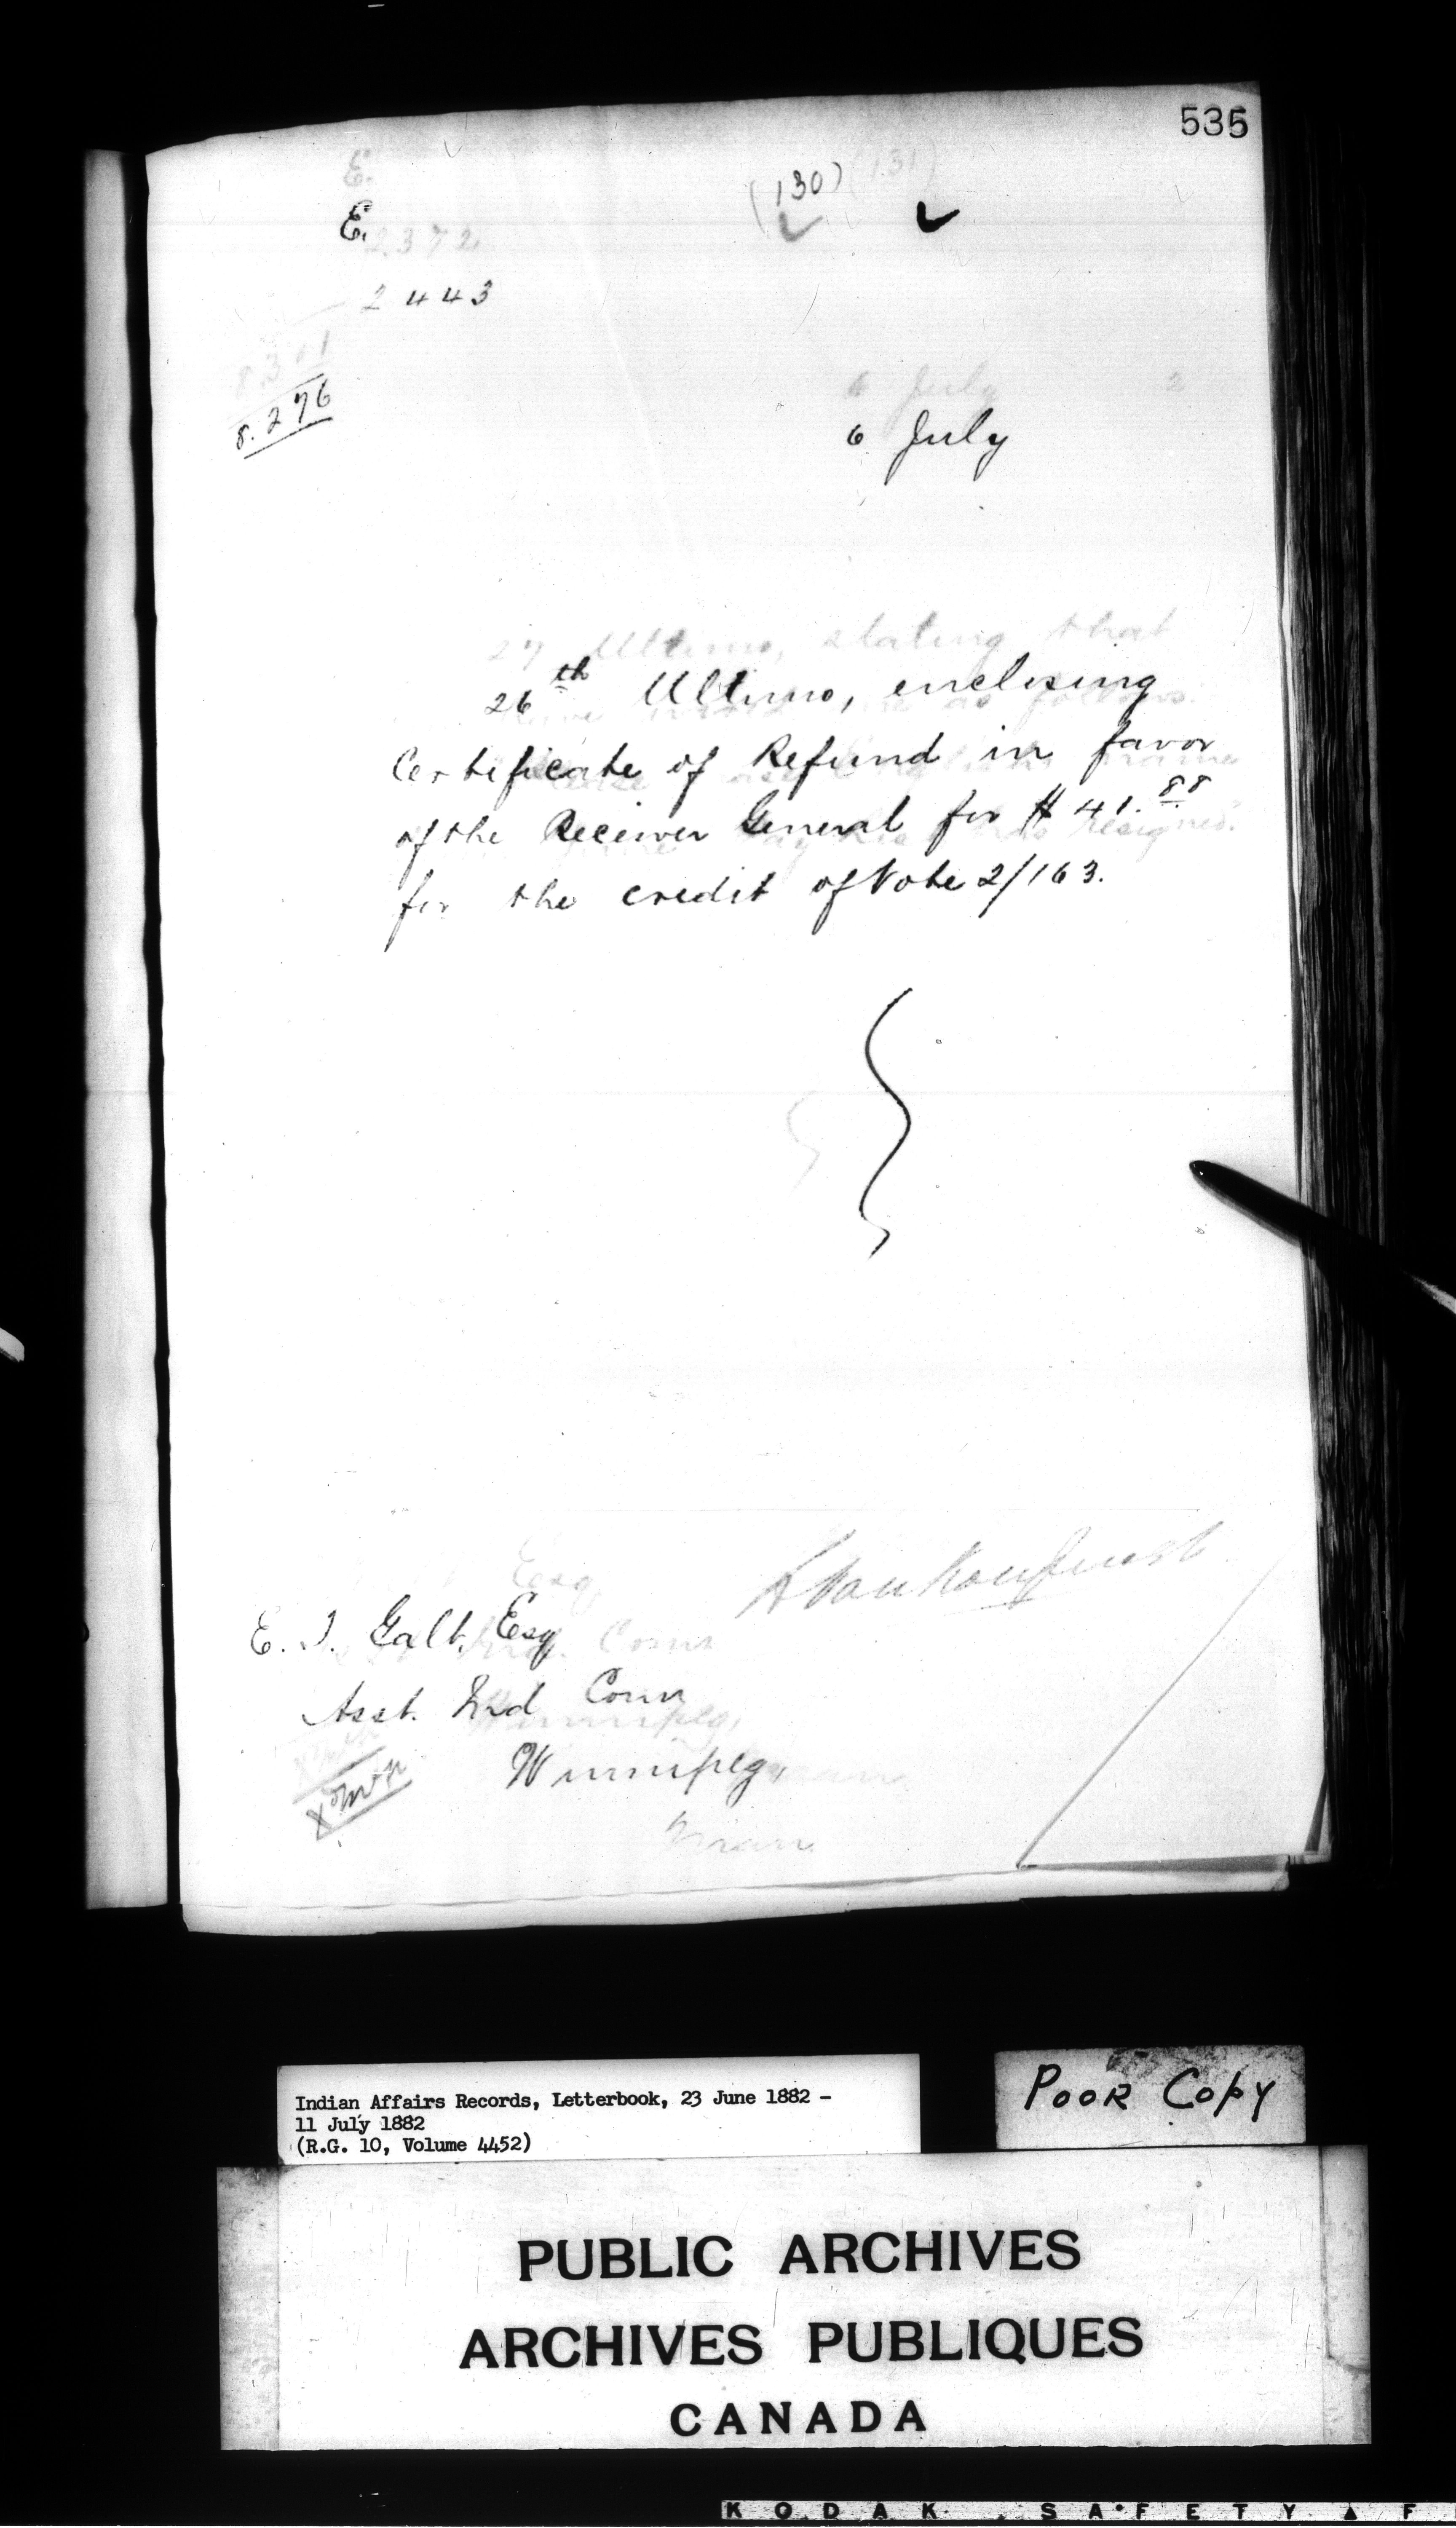 535
(130) (131)
E.
E.
2372
2443
8.301
8.276
6 July 2
6 July
27 Ultimo, stating that
26th Ultimo, enclosing
as follows.
Certificate of Refund in favor
of the Receiver General for $41.88
resigned.
for the credit of Vote 2/163.
Esq
L VanKoughnet
E. T. Galt, Esq
Asst. Ind Comr
Winnipeg,
Winnipeg,
Man
Indian Affairs Records, Letterbook, 23 June 1882 -
11 July 1882
(R.G. 10, Volume 4452)
POOR COPY
PUBLIC ARCHIVES
ARCHIVES PUBLIQUES
CANADA
KODAK SAFETY ▲ F